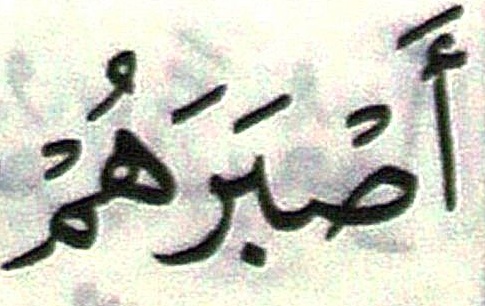 أَصْبَرَهُمْ